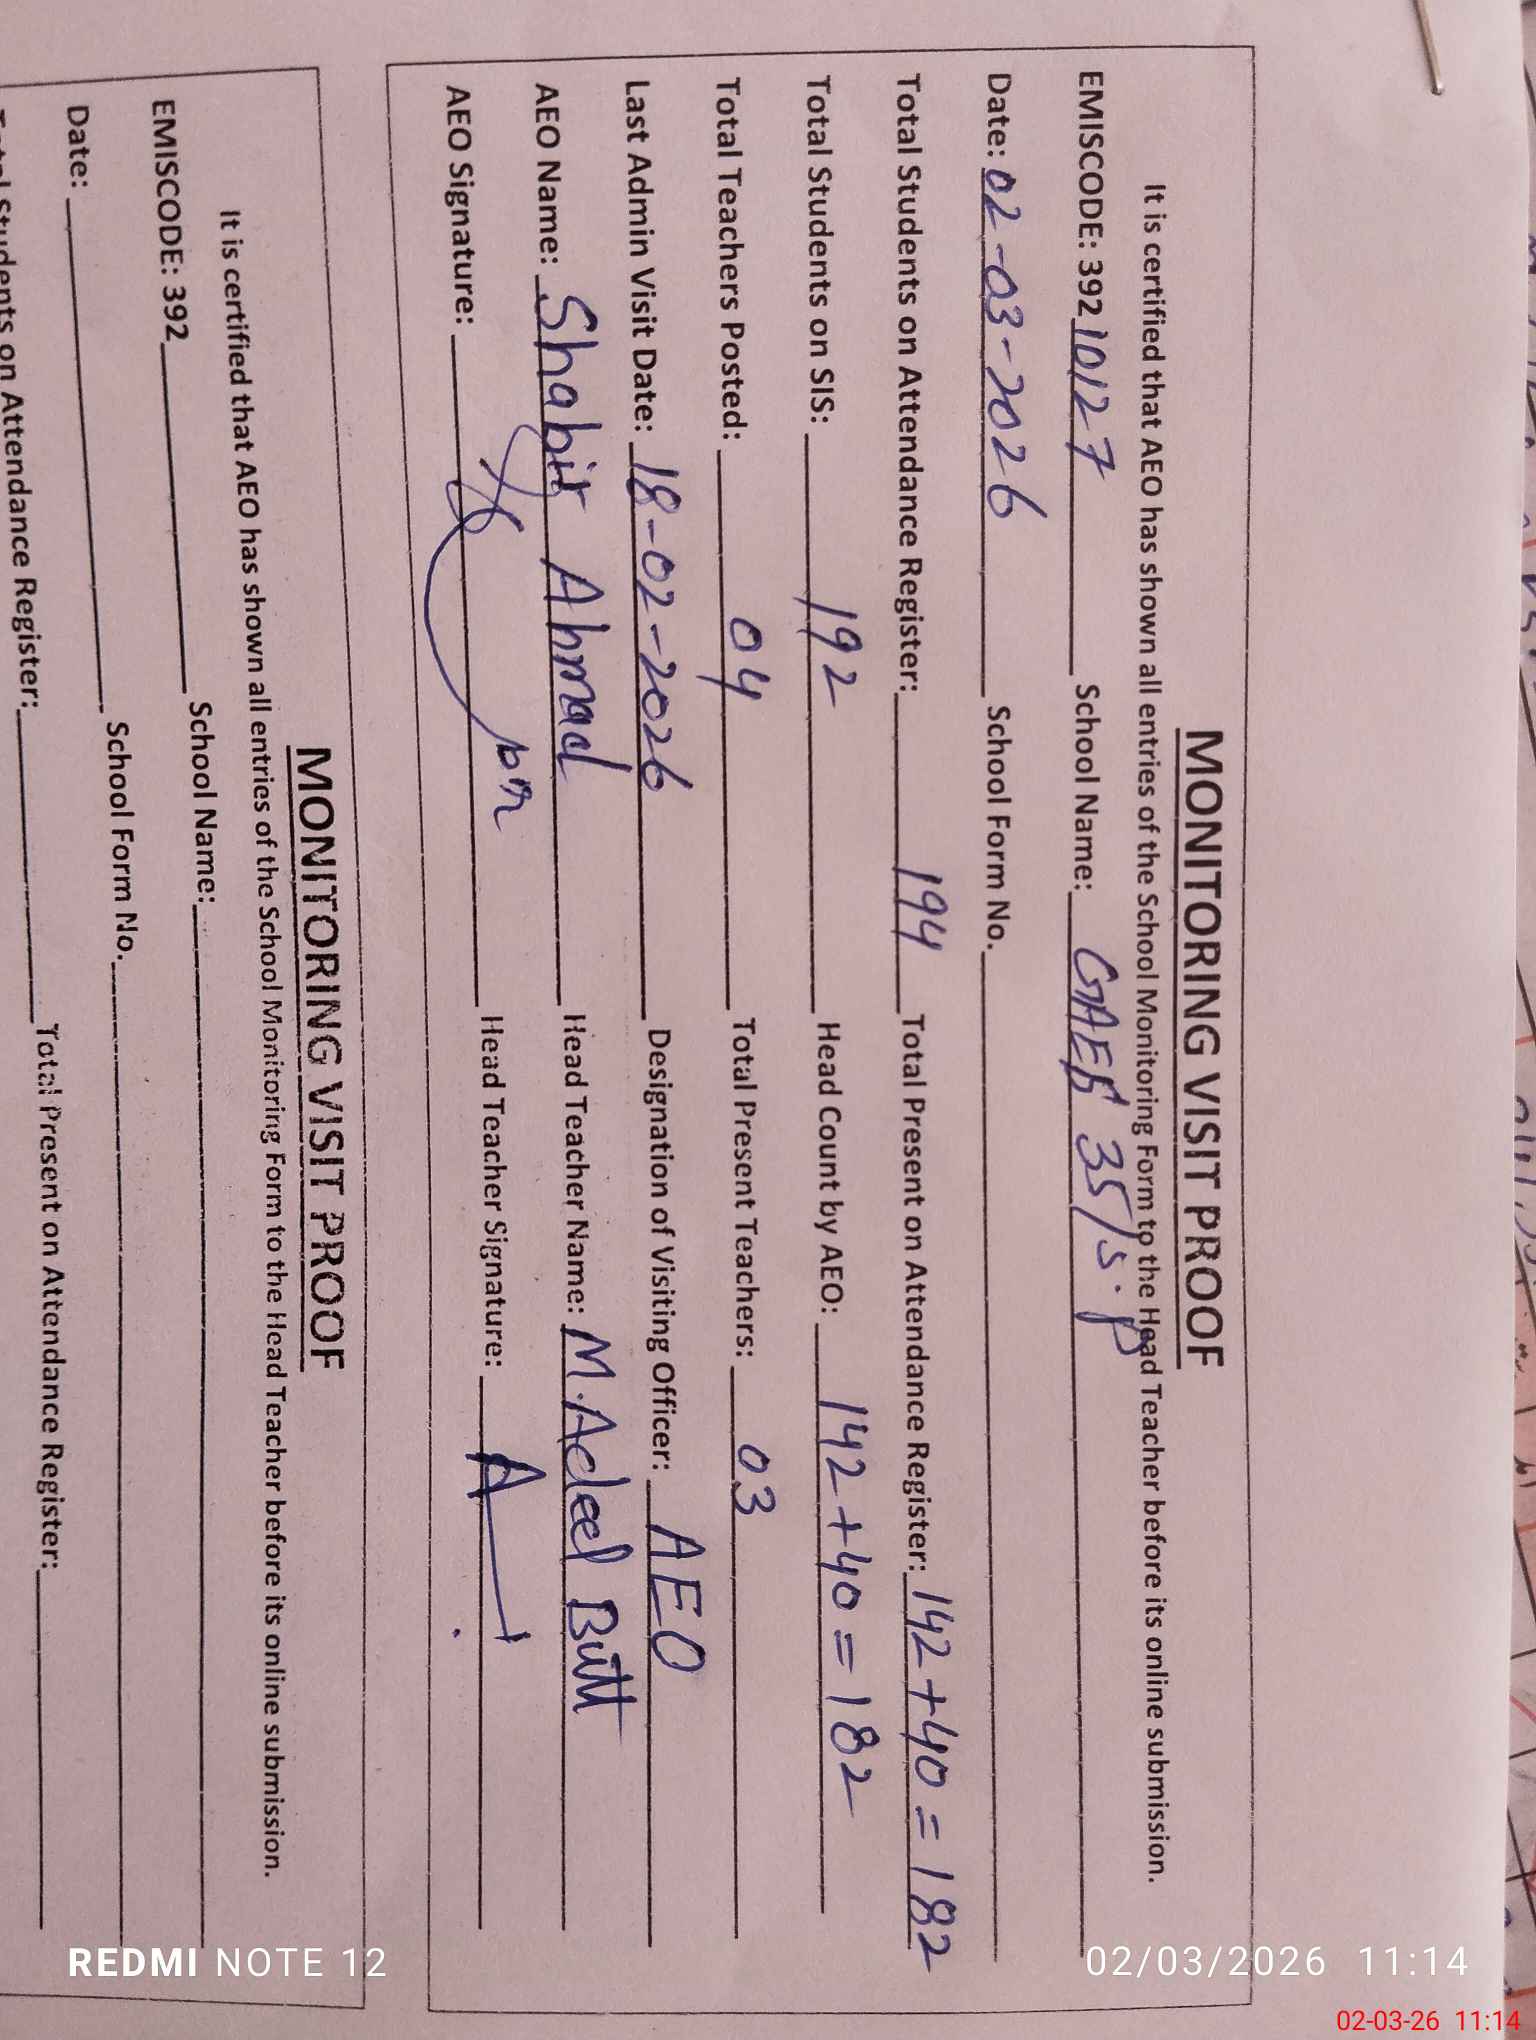 MONITORING VISIT PROOF
It is certified that AEO has shown all entries of the School Monitoring Form to the Head Teacher before its online submission.
EMISCODE: 39210127 School Name: 35/s.p
Date: 02-03-2026 School Form No.
Total Students on Attendance Register: 194 Total Present on Attendance Register: 142+40=182
Total Students on SIS: 192 Head Count by AEO: 142+40=182
Total Teachers Posted: 04 Total Present Teachers: 03
Last Admin Visit Date: 18-02-2026 Designation of Visiting Officer: AEO
AEO Name: Shabir Ahmad Head Teacher Name: M.Adeel Butt
AEO Signature: Head Teacher Signature:
MONITORING VISIT PROOF
It is certified that AEO has shown all entries of the School Monitoring Form to the Head Teacher before its online submission.
EMISCODE: 392 School Name:
Date: School Form No.
Total Students on Attendance Register: Total Present on Attendance Register:
REDMI NOTE 12
02/03/2026 11:14
02-03-26 11:14